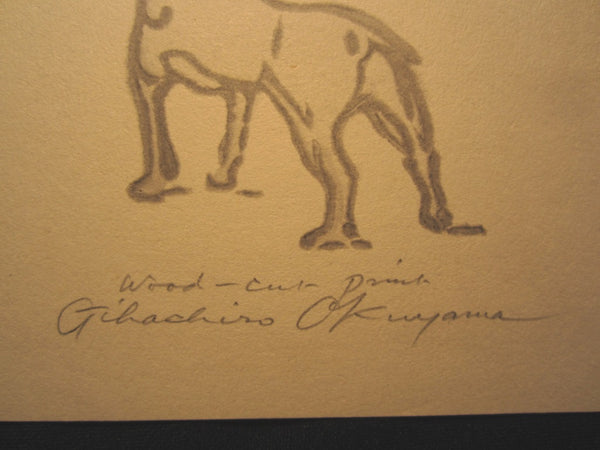 Wood-cut print
Gihachiro Okuyama